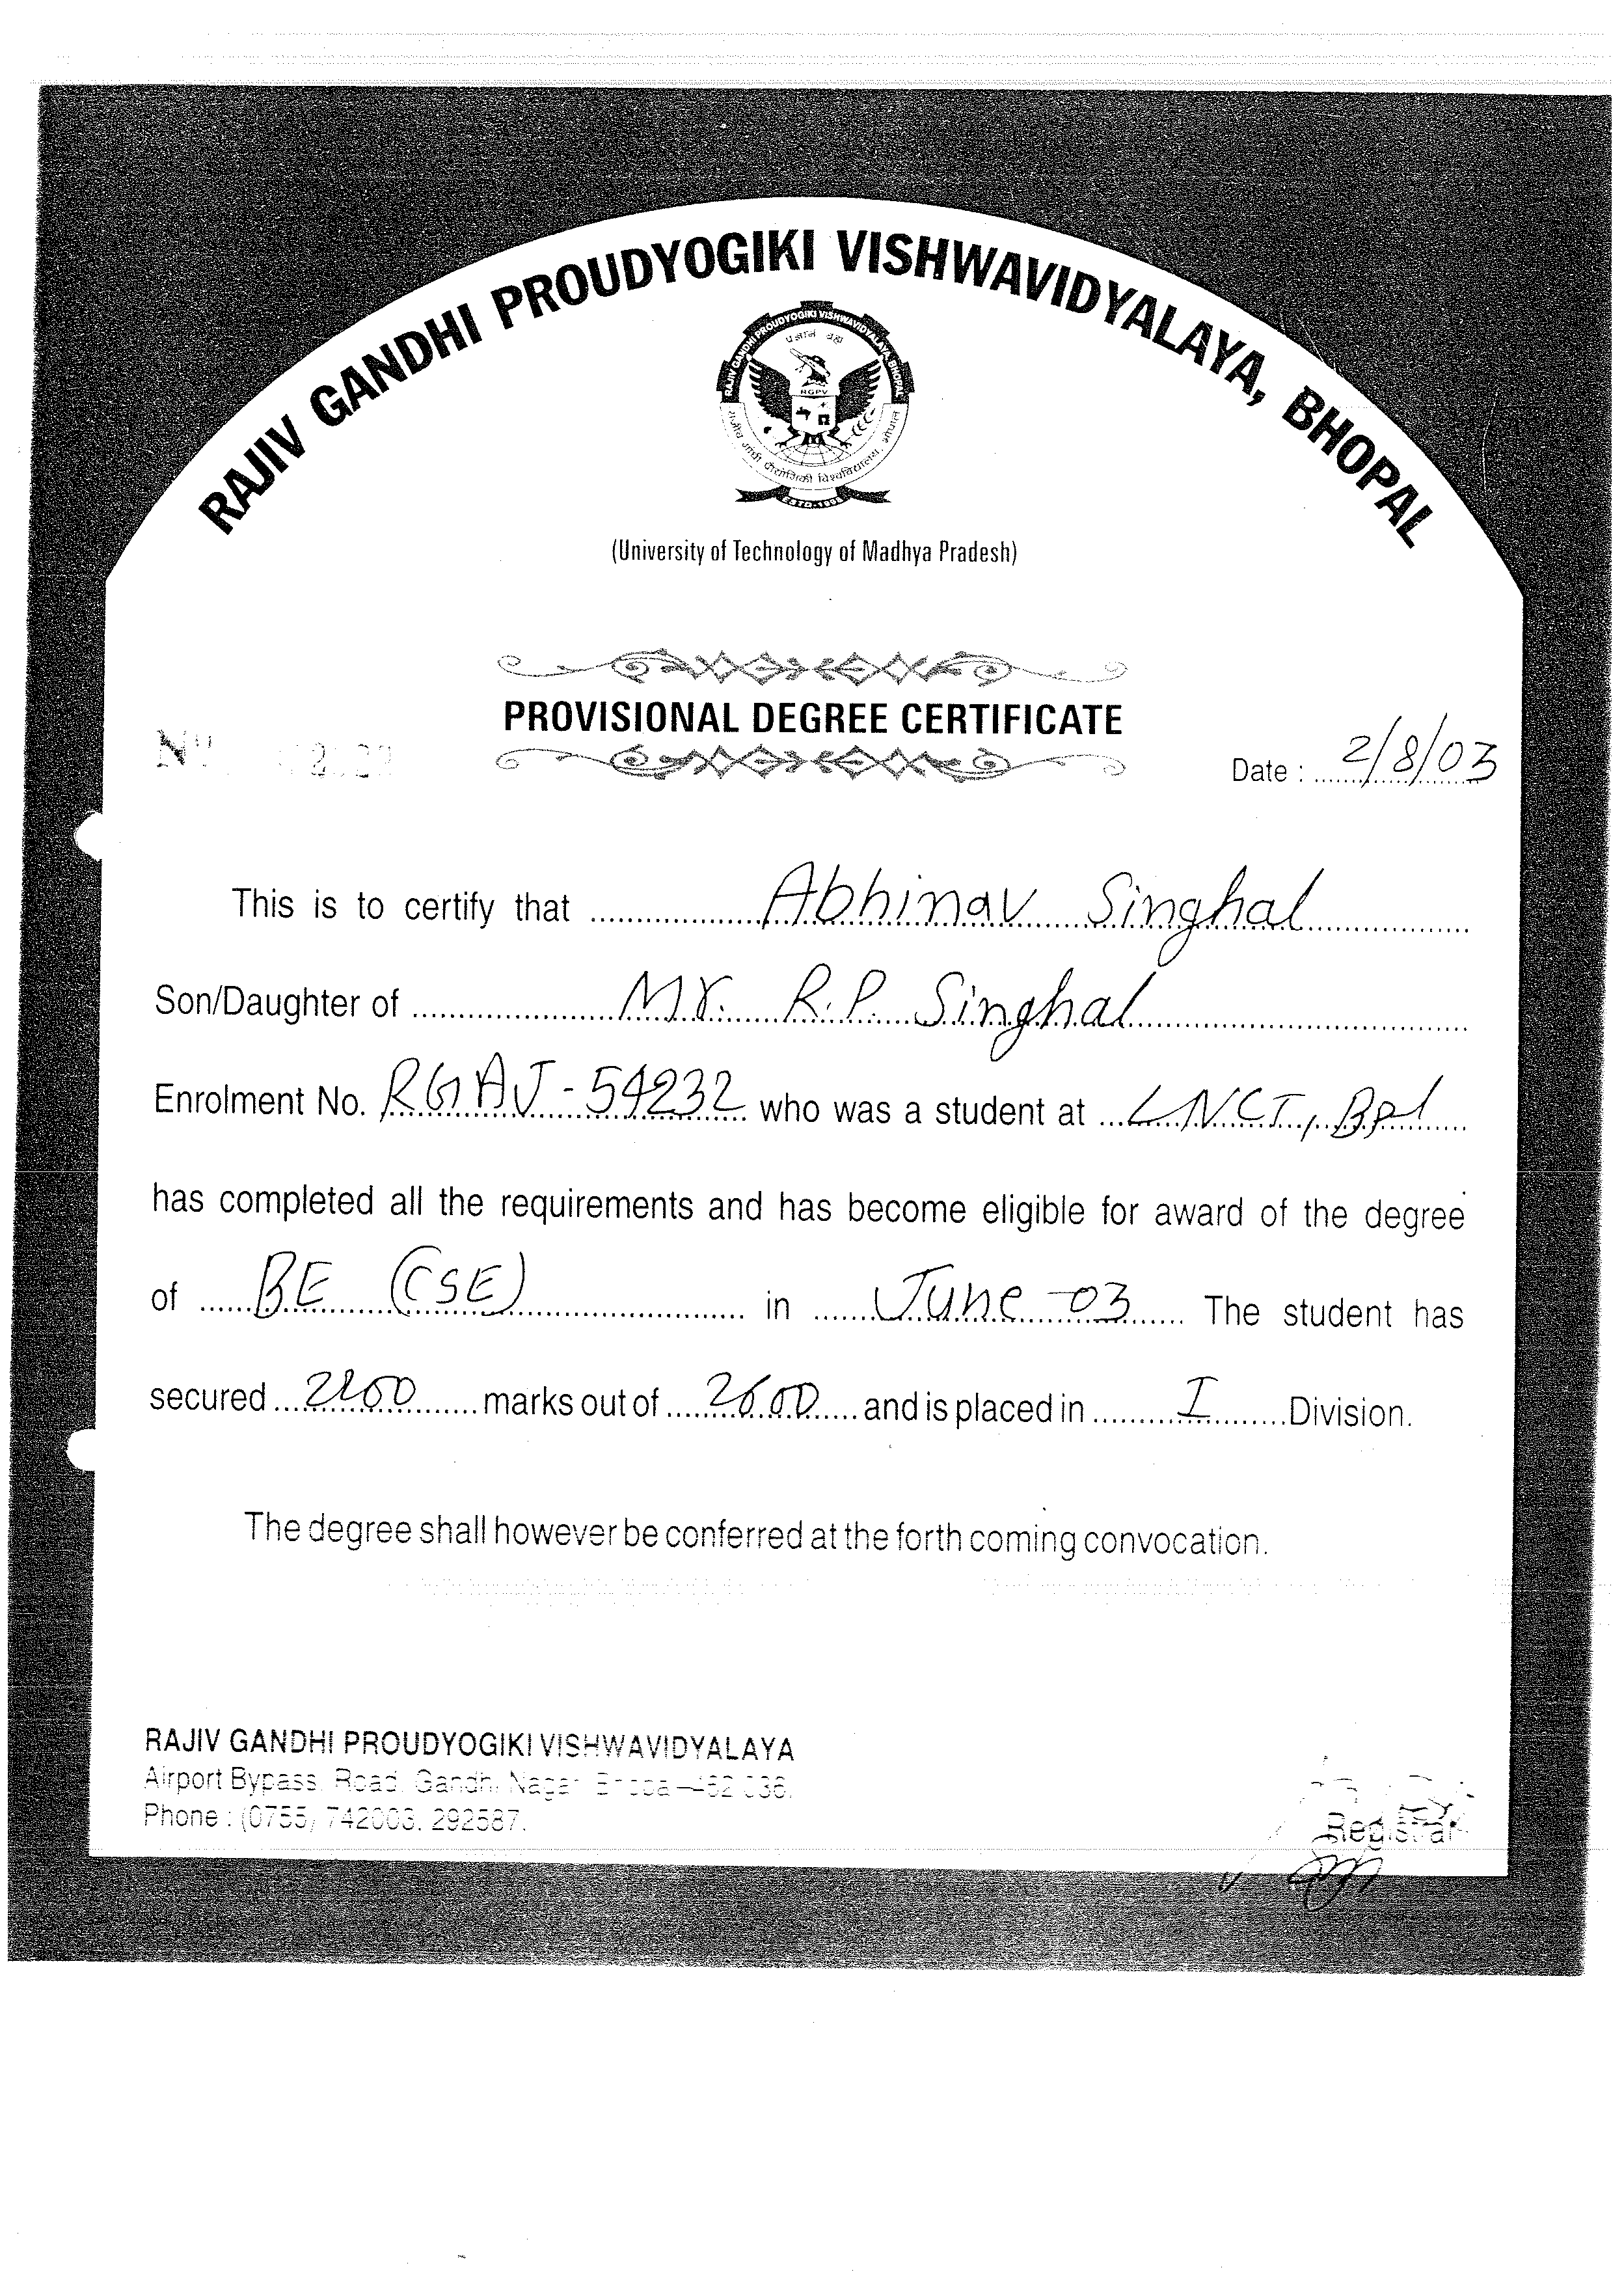 RAJIV GANDHI PROUDYOGIKI VISHWAVIDYALAYA, BHOPAL
RAJIV GANDHI PROUDYOGIKI VISHWAVIDYALAYA, BHOPAL
RGPV
राजीव गांधी प्रौद्योगिकी विश्वविद्यालय, भोपाल
ESTD. 1998
(University of Technology of Madhya Pradesh)
PROVISIONAL DEGREE CERTIFICATE
Date : 2/8/03
This is to certify that Abhinav Singhal
Son/Daughter of Mr. R.P. Singhal
Enrolment No. RGAJ-54232 who was a student at LNCT, Bpl
has completed all the requirements and has become eligible for award of the degree
of BE (CSE) in June-03 The student has
secured marks out of 2600 and is placed in I Division.
The degree shall however be conferred at the forth coming convocation.
RAJIV GANDHI PROUDYOGIKI VISHWAVIDYALAYA
Airport Bypass Road, Gandhi Nagar
Phone : (0755) 742003, 292587.
Registrar